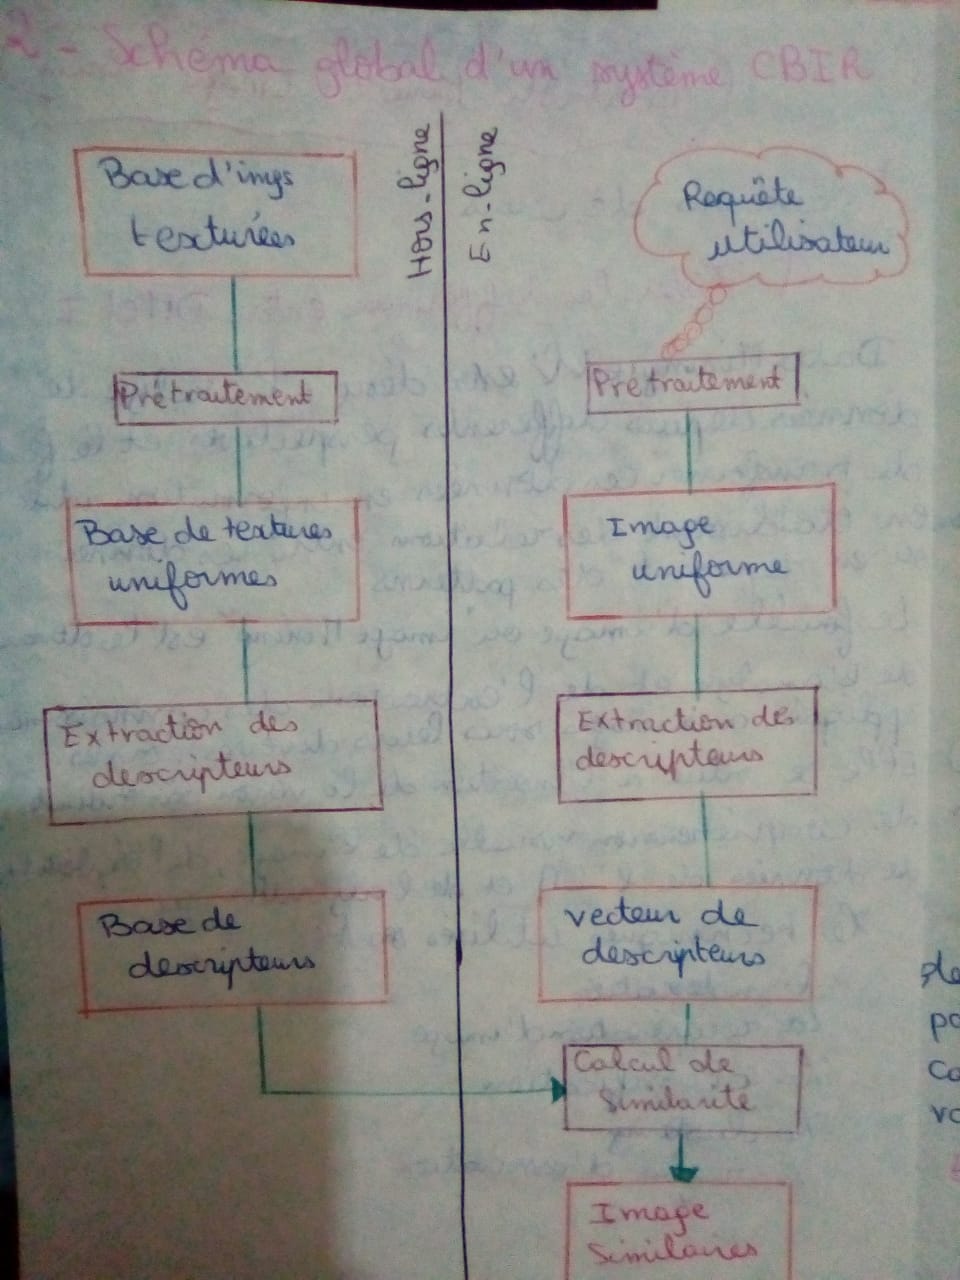 2 - Schéma global d'un système CBIR
Hors-ligne
En-ligne
Base d'imgs
texturées
Prétraitement
Base de textures
uniformes
Extraction des
descripteurs
Base de
descripteurs
Requête
utilisateur
Prétraitement
Image
uniforme
Extraction des
descripteurs
vecteur de
descripteurs
Calcul de
Similarité
Image
Similaires